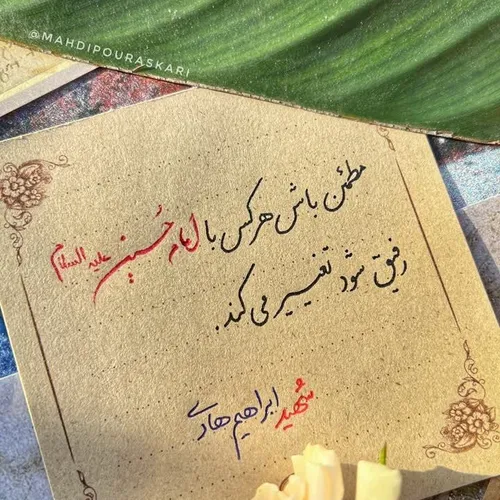 @MAHDIPOURASKARI
مطمئن باش هرکس با امام حُسین علیه السلام
رفیق شود تغییر می کند.
شهید ابراهیم هادی